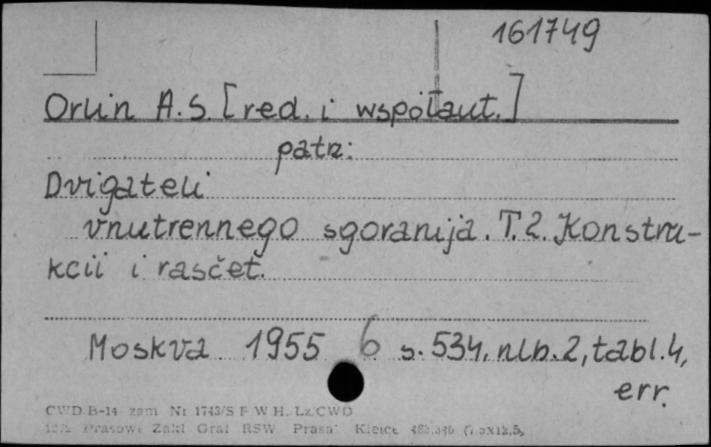 161749
Orlin A.S. [red. i współaut.]
patrz:
Dvigateli
vnutrennego sgoranija. T.2. Konstru-
kcii i rasčet.
Moskva 1955 6 s. 534, nlb. 2, tabl. 4,
err.
CWD B-14 zam Nr 1743/S F W H. Lz.CWD
Prasowe Zakł Graf RSW Prasa Kielce